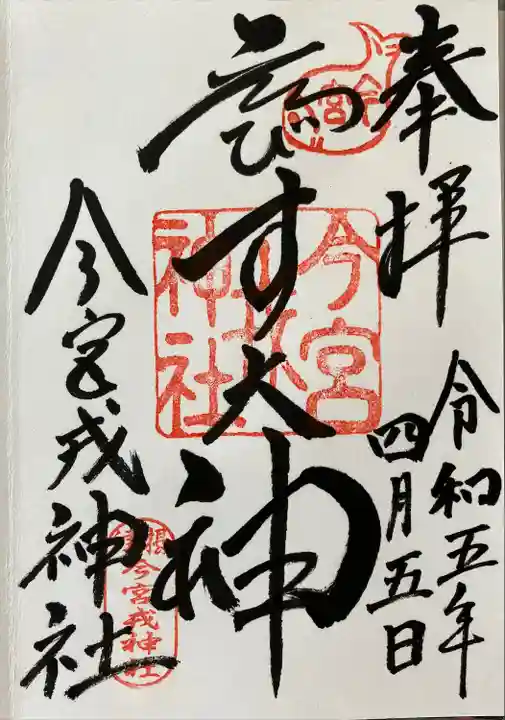 奉拝
令和五年
四月五日
ゑびす大神
今宮戎神社
今宮
戎
神社
今宮戎神社